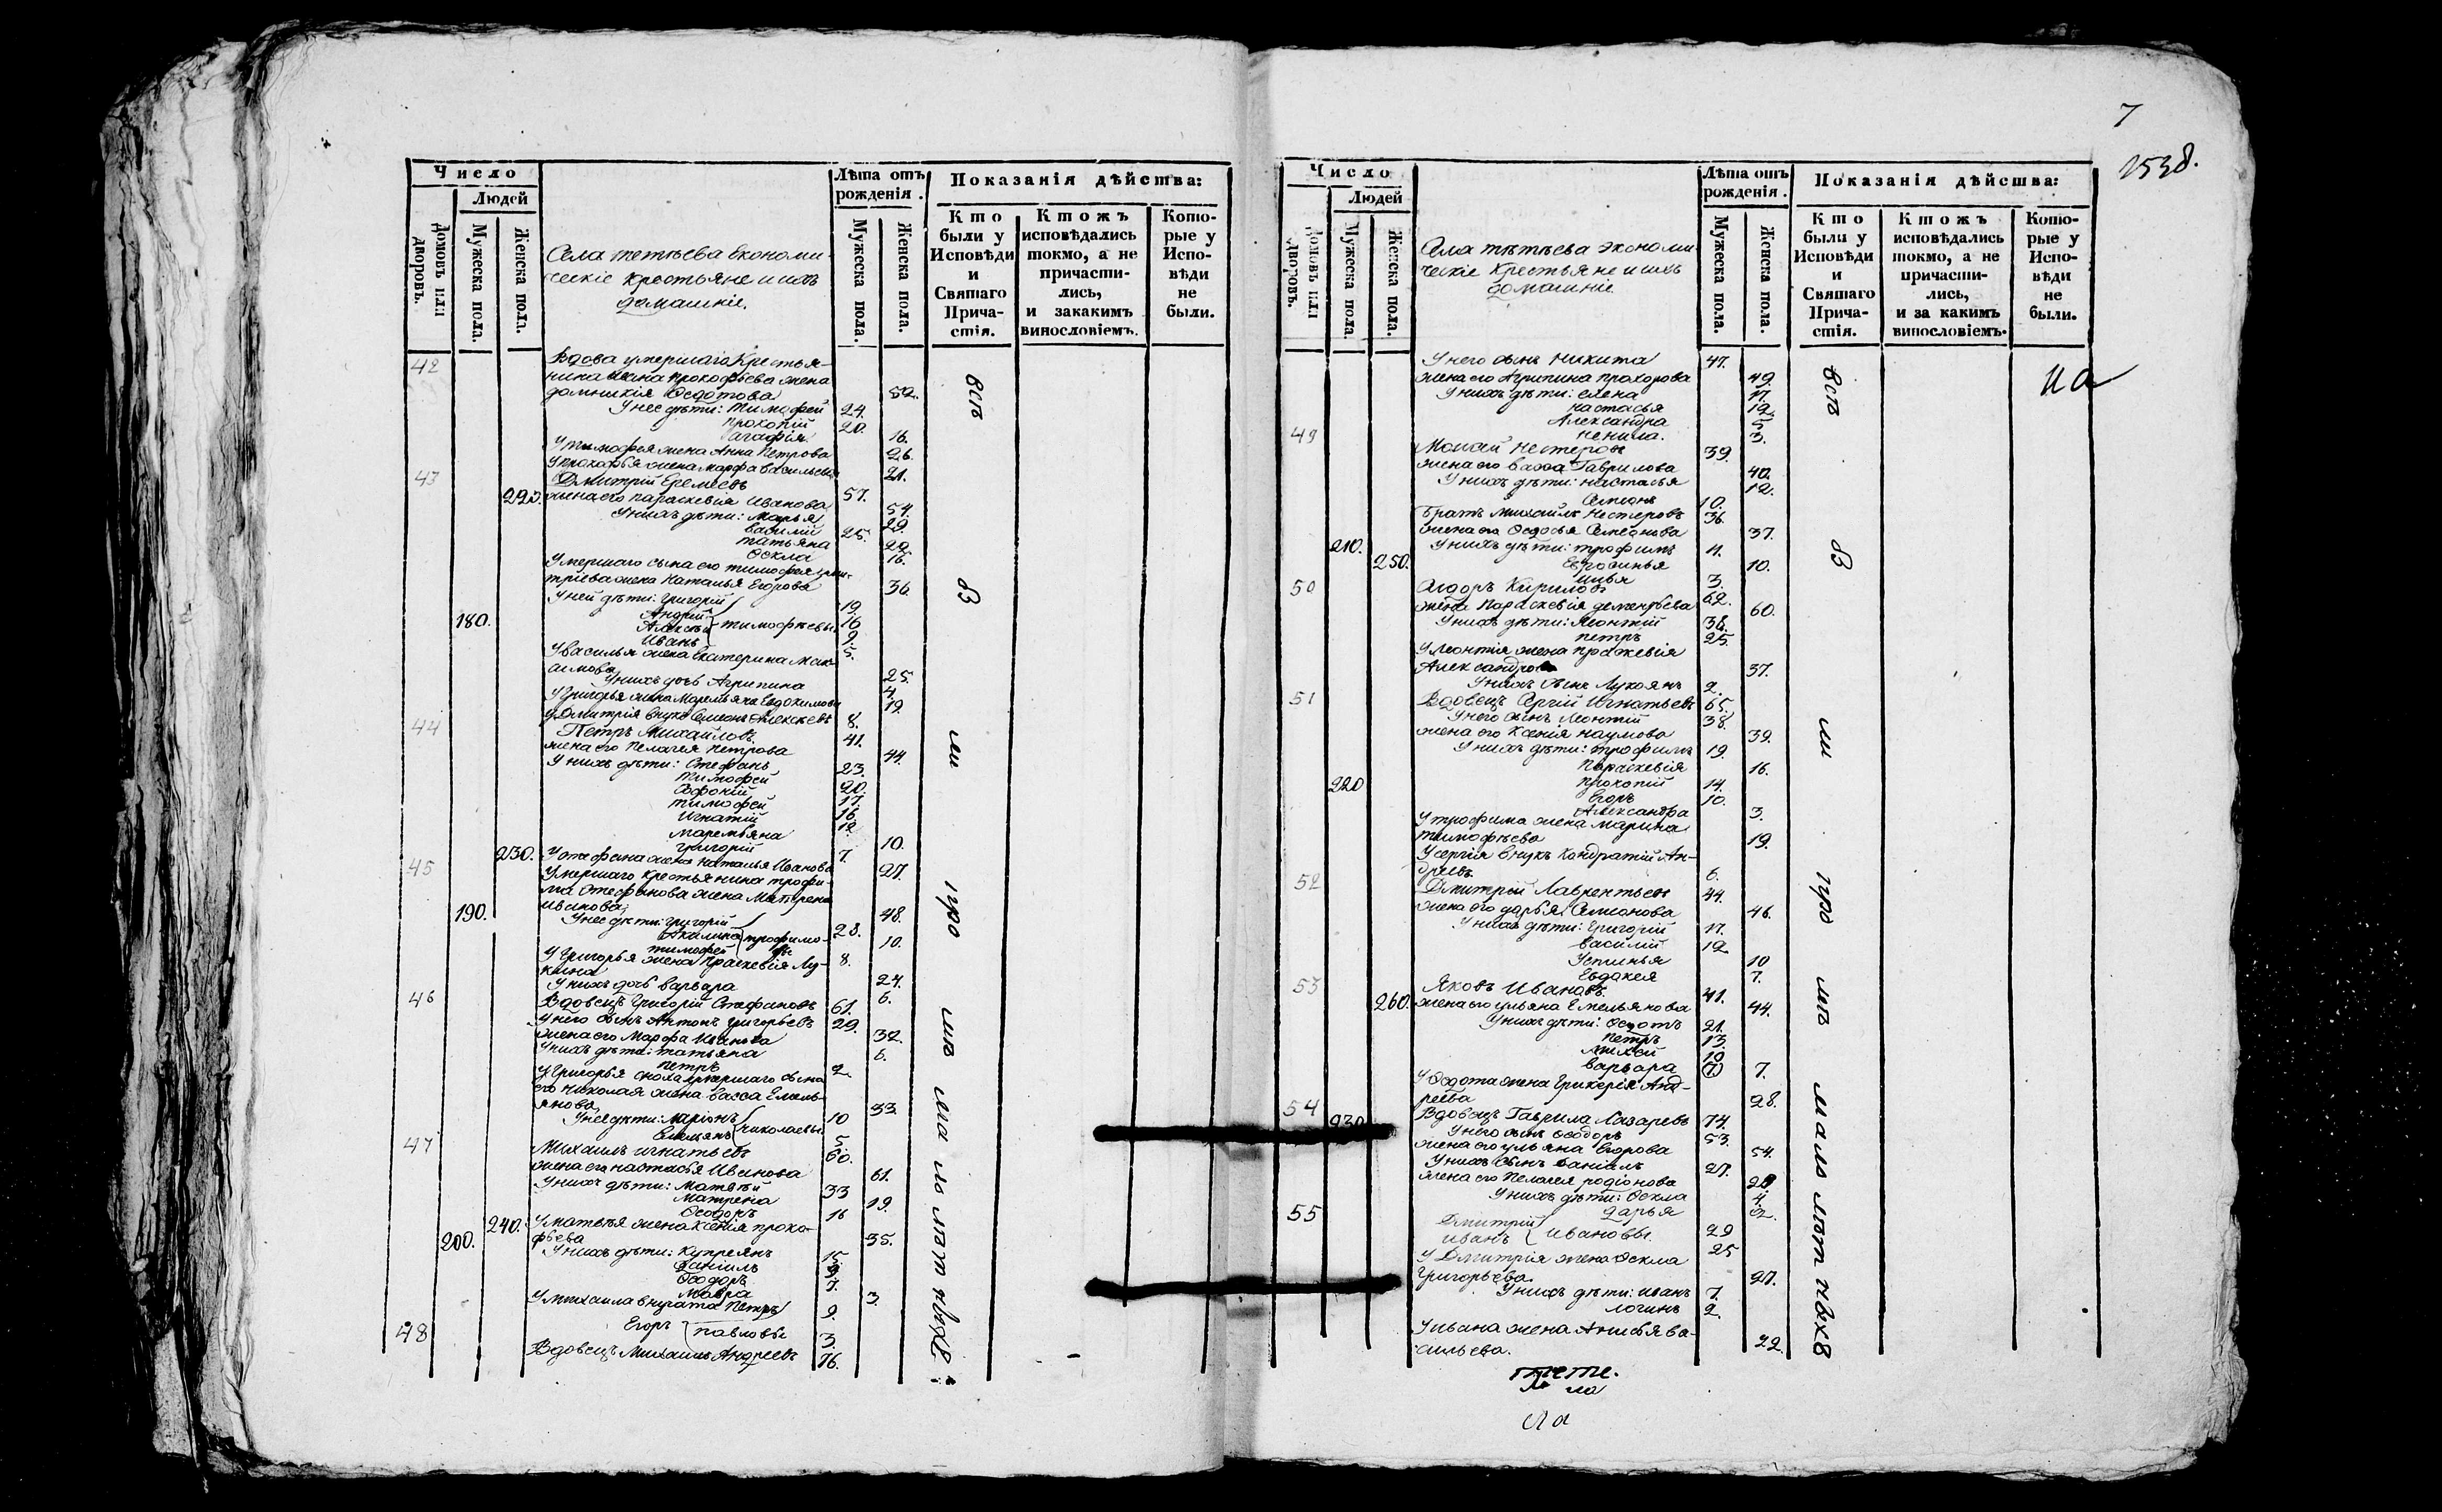 Число
Людей
Домовъ или дворовъ.
Мужеска пола.
Женска пола.
Села тетѣева Економи-
ческіе крестьяне и ихъ
домашніе.
Лѣта отъ рожденія.
Мужеска пола.
Женска пола.
Показанія дѣйства:
Кто были у Исповѣди и Святаго Прича-стія.
Ктожъ исповѣдались токмо, а не причасти-лись, и закакимъ винословіемъ.
Кото-рые у Испо-вѣди не были.
42
Вдова умершаго Крестья-
нина Ивана прокофьева жена
домникія Ѳедотова 52.
У нее дѣти: тимофей 24.
прокопій 20.
агафія 16.
У тимофея жена Анна Петрова 26.
У прокофья жена марфа васильева 21.
43 Дмитрій Еремеевъ 57.
жена его параскевія Иванова 54.
У нихъ дѣти: Марья 29
василій 25.
татьяна 20.
Ѳекла 16.
Умершаго сына его тимофея дми-
тріева жена Наталья Егорова 36.
У ней дѣти: григорій 19.
Андрей 16
Алексѣй тимофѣевы 9.
180. Иванъ 5.
У василья жена Екатерина Мак-
симова 25.
У нихъ дочь Агрипина 4.
У григорья жена Маремьяна Евдокимова 19.
У Дмитрія внукъ Симеонъ Алексѣевъ 8.
44 Петръ Михайловъ 41.
жена его Пелагея петрова 44.
У нихъ дѣти: Стефанъ 23.
тимофей 20.
Софоній 17
тимофей 16
Игнатій 12
маремьяна 10.
григорій 7.
230. У стефана жена наталья Иванова 27.
45 Умершаго крестьянина трофи-
ма Стефанова жена Матрена
иванова 48.
190. У нее дѣти: григорій 28.
Акилина трофимо- 10.
тимофей вы 8.
У григорья жена праскевія Лу-
кина 24.
У нихъ дочь варвара 6.
46 Вдовецъ григорій Стефановъ 61.
У него сынъ Антонъ григорьевъ 29.
жена его Марфа Иванова 32.
У нихъ дѣти: татьяна 6.
петръ 2.
У григорья сноха умершаго сына
его николая жена васса Емель-
янова 33
У нее дѣти: ларіонъ 10
Емельянъ николаевы 5
47 Михаилъ игнатьевъ 60.
жена его настасья Иванова 61.
У нихъ дѣти: Матвѣй 33
матрена 19.
Ѳеодоръ 16
240. У матвѣя жена ксенія проко-
фьева 35.
200. У нихъ дѣти: Купреянъ 15
Даніилъ 9
Ѳеодоръ 7.
мавра 3.
У михаила внучата Петръ 9.
Егоръ павловы 3.
48 Вдовецъ Михаилъ Андреевъ 76.
всѣ
7
1538.
Число
Людей
Домовъ или дворовъ.
Мужеска пола
Женска пола.
Села тѣтѣева экономи-
ческіе Крестьяне и ихъ
домашніе
Лѣта отъ рожденія.
Мужеска пола.
Женска пола.
Показанія дѣйства:
Кто были у Исповѣди и Святаго Прича-стія.
Ктожъ исповѣдались токмо, а не причасти-лись, и за какимъ винословіемъ.
Кото-рые у Испо-вѣди не были.
У него сынъ Никита 47.
жена его Агрипина прохорова 49.
У нихъ дѣти: елена 17.
настасья 12.
Александра 5
ненила. 3.
49 Мокей Нестеровъ 39.
жена его васса Гаврилова 40.
У нихъ дѣти: настасья 12.
Симеонъ 10.
братъ михаилъ нестеровъ 36.
жена его Ѳедосья Семенова 37.
210. У нихъ дѣти: трофимъ 11.
250. Евфросинья 10.
илья 3.
50 Сидоръ Кириловъ 62.
жена параскевія дементьева 60.
У нихъ дѣти: леонтій 38.
петръ 25.
У леонтія жена праскевія
Александрова 37.
У нихъ сынъ Лукоянъ 2.
51 Вдовецъ Сергій Игнатьевъ 65.
У него сынъ леонтій 38.
жена его Ксенія наумова 39.
У нихъ дѣти: трофимъ 19.
параскевія 16.
220 прокопій 14.
Егоръ 10.
Александра 3.
У трофима жена марина
тимофѣева 19.
У сергія внукъ кондратій Ан-
дреевъ 6.
52 Дмитрій Лаврентьевъ 44.
жена его дарья Симеонова 46.
У нихъ дѣти: григорій 17.
василій 12
Устинья 10
Евдокея 7.
53 Яковъ Ивановъ 41.
260. жена его ульяна Емельянова 44.
У нихъ дѣти: Ѳедотъ 21.
петръ 13.
михей 10
варвара 7.
У Ѳедота жена гликерія Анд-
реева 28.
54 Вдовецъ Гаврила Лазаревъ 74.
230 У него сынъ Ѳеодоръ 53.
жена его ульяна Егорова 54.
У нихъ сынъ даніилъ 27.
жена его Пелагея родіонова
У нихъ дѣти: Ѳекла 4.
дарья 2.
55 Дмитрій 29
иванъ ивановы 25
У Дмитрія жена Ѳекла
Григорьева 27.
У нихъ дѣти: иванъ 7.
логинъ 2.
У ивана жена Анисья ва-
сильева. 22.
всѣ